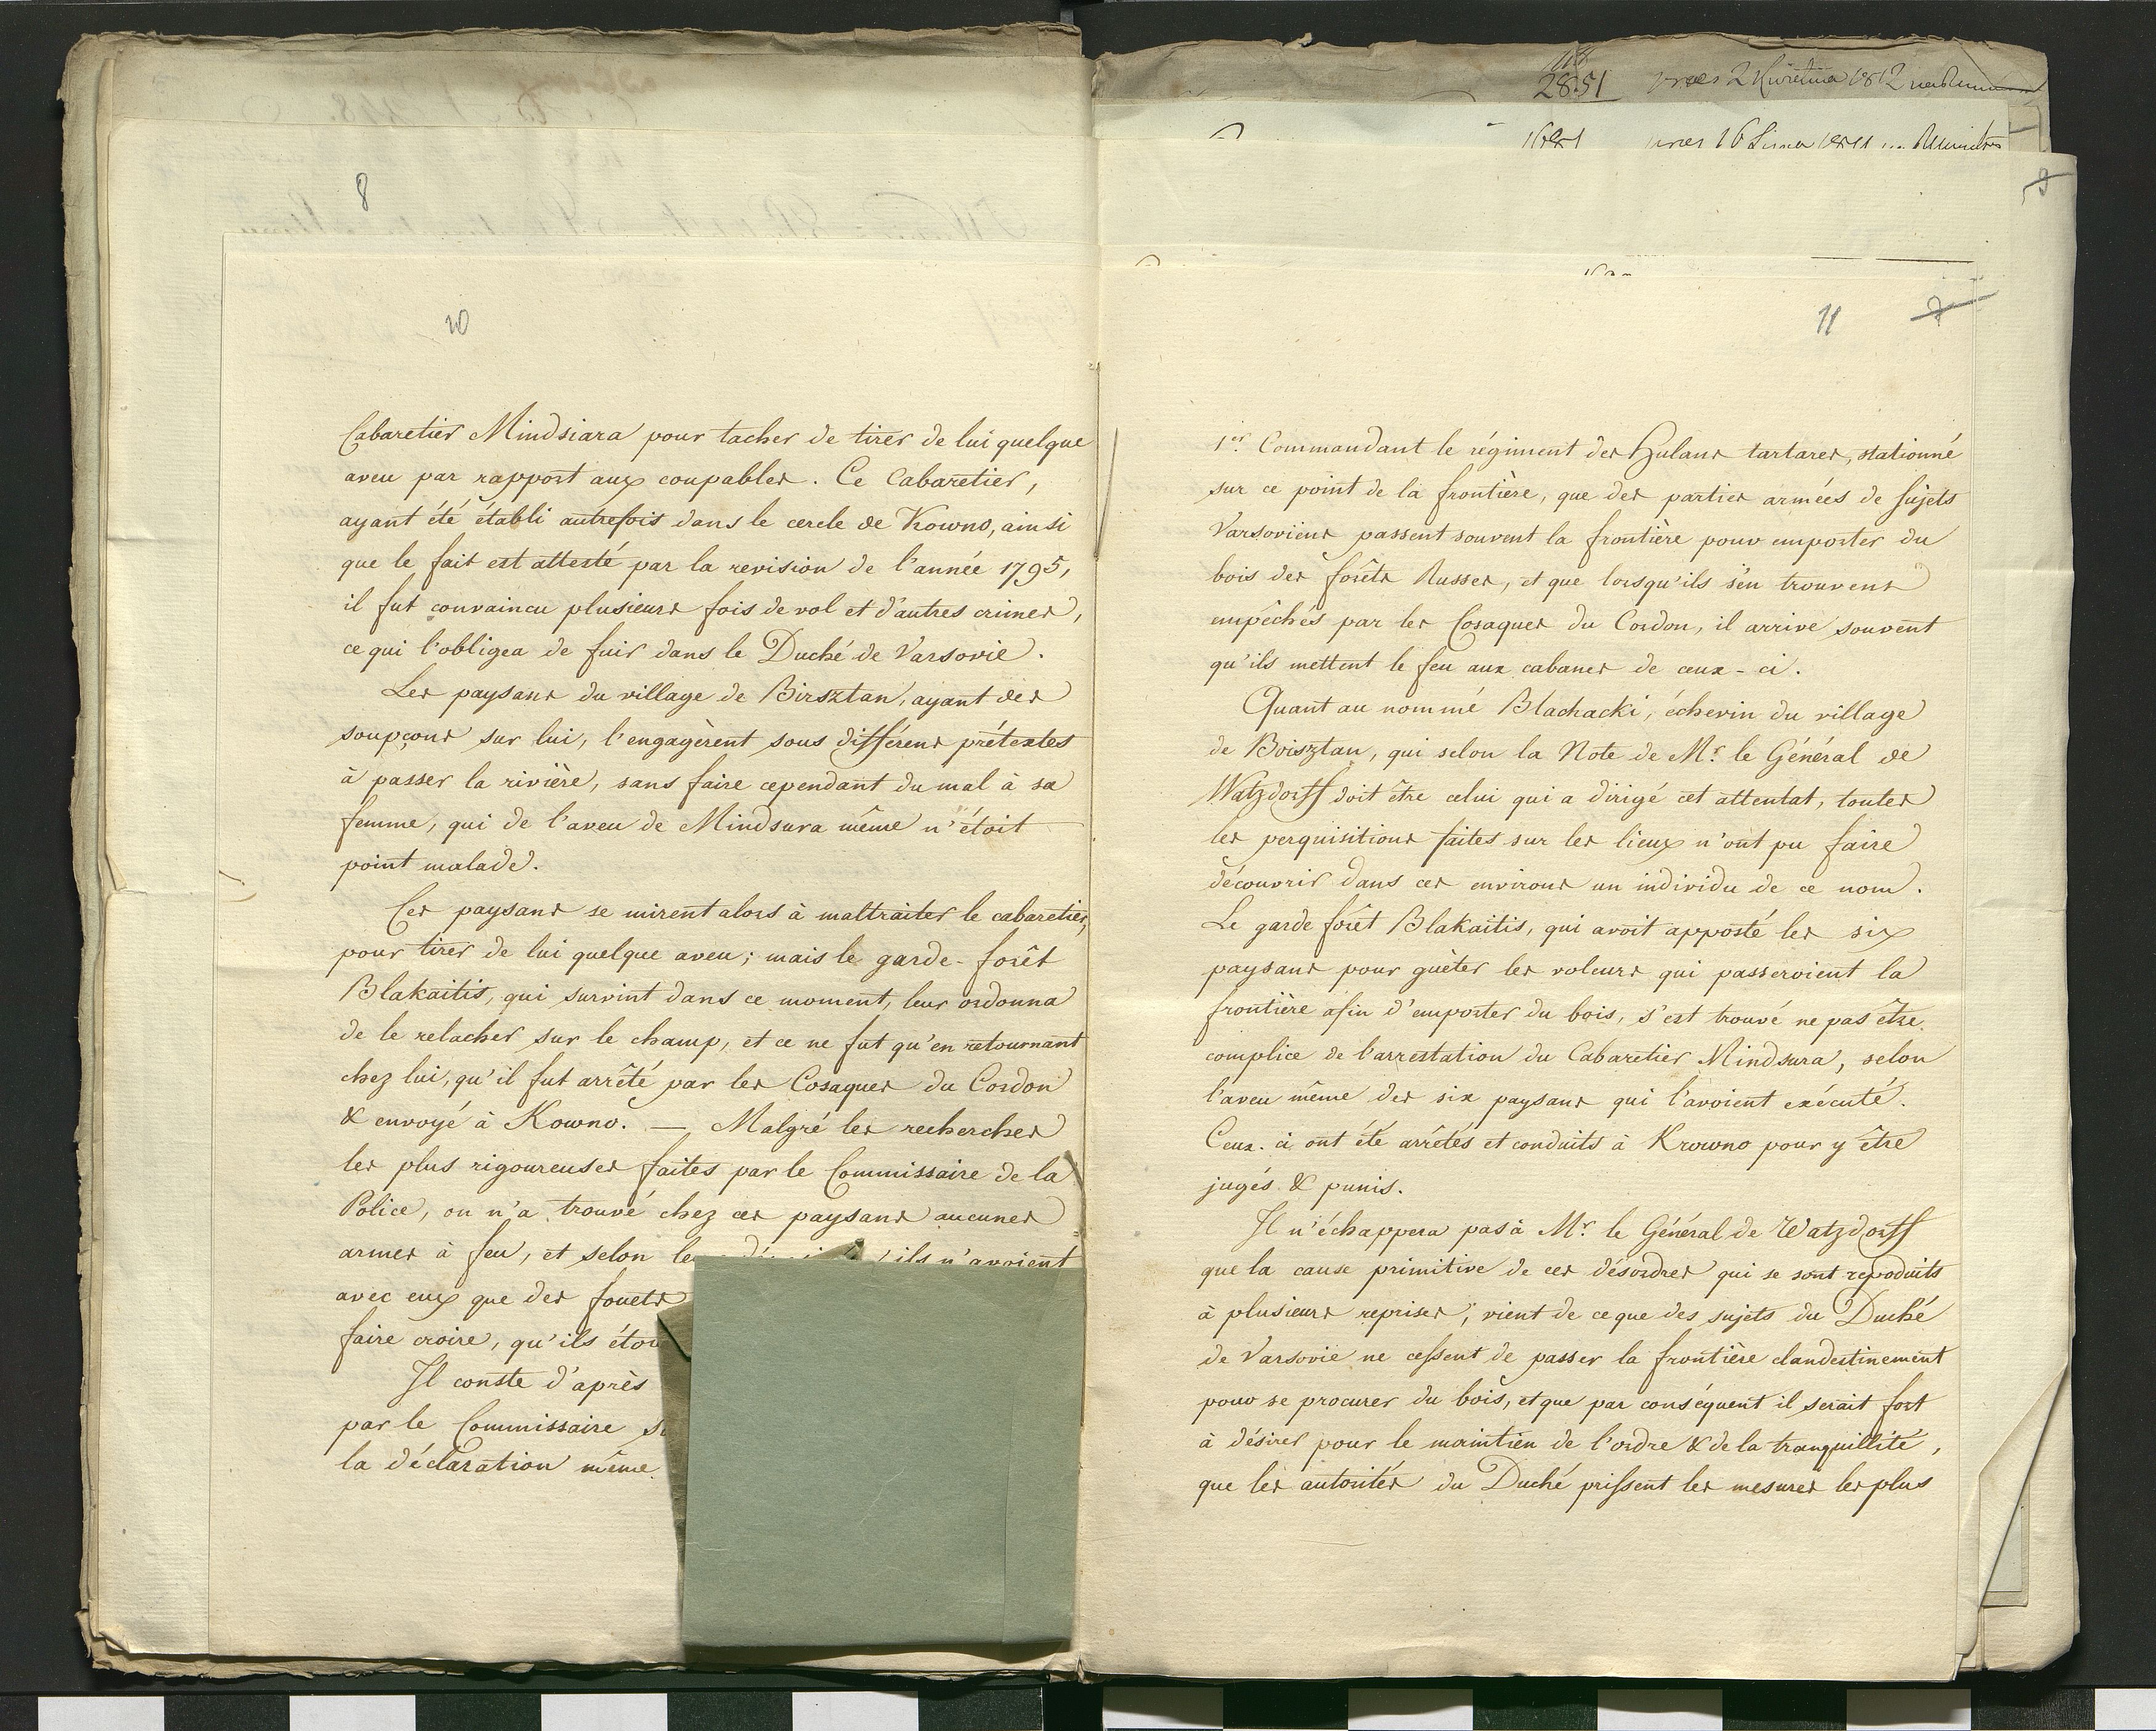 8
10
Cabaretier Mindsiara pour tacher de tirer de lui quelque
aveu par rapport aux coupables. Ce Cabaretier,
ayant été établi autrefois dans le cercle de Kowno, ainsi
que le fait est attesté par la revision de l'année 1795,
il fut convaincu plusieurs fois de vol et d'autres crimes,
ce qui l'obligea de fuir dans le Duché de Varsovie.
Les paysans du village de Birsztan, ayant des
soupçons sur lui, l'engagèrent sous différens prétextes
à passer la rivière, sans faire cependant du mal à sa
femme, qui de l'aveu de Mindsura même n'étoit
point malade.
Ces paysans se mirent alors à maltraiter le cabaretier,
pour tirer de lui quelque aveu; mais le garde-forêt
Blakaitis, qui survint dans ce moment, leur ordonna
de le relacher sur le champ, et ce ne fut qu'en retournant
chez lui, qu'il fut arrêté par les Cosaques du Cordon
& envoyé à Kowno. — Malgré les recherches
les plus rigoureuses faites par le Commissaire de la
Police, on n'a trouvé chez ces paysans aucunes
armes à feu, et selon ils n'avoient
avec eux que des fouets
faire croire, qu'ils
Il conste d'après
par le Commissaire
la déclaration même
2851
11
1er. Commandant le régiment des Hulans tartares, stationné
sur ce point de la frontière, que des parties armées de sujets
Varsoviens passent souvent la frontière pour emporter du
bois des forêts Russes, et que lorsqu'ils s'en trouvent
empêchés par les Cosaques du Cordon, il arrive souvent
qu'ils mettent le feu aux cabanes de ceux-ci.
Quant au nommé Blachacki, échevin du village
de Boisztan, qui selon la Note de Mr. le Général de
Watzdorff doit être celui qui a dirigé cet attentat, toutes
les perquisitions faites sur les lieux n'ont pu faire
découvrir dans ces environs un individu de ce nom.
Le garde forêt Blakaitis, qui avoit apposté les six
paysans pour guèter les voleurs qui passeroient la
frontière afin d'emporter du bois, s'est trouvé ne pas être
complice de l'arrestation du Cabaretier Mindsura, selon
l'aveu même des six paysans qui l'avoient exécuté.
Ceux-ci ont été arrêtés et conduits à Krowno pour y être
jugés & punis.
Il n'échappera pas à Mr. le Général de Watzdorff
que la cause primitive de ces désordres qui se sont reproduits
à plusieurs reprises, vient de ce que des sujets du Duché
de Varsovie ne cessent de passer la frontière clandestinement
pour se procurer du bois, et que par conséquent il serait fort
à désirer pour le maintien de l'ordre & de la tranquillité,
que les autorités du Duché prissent les mesures les plus